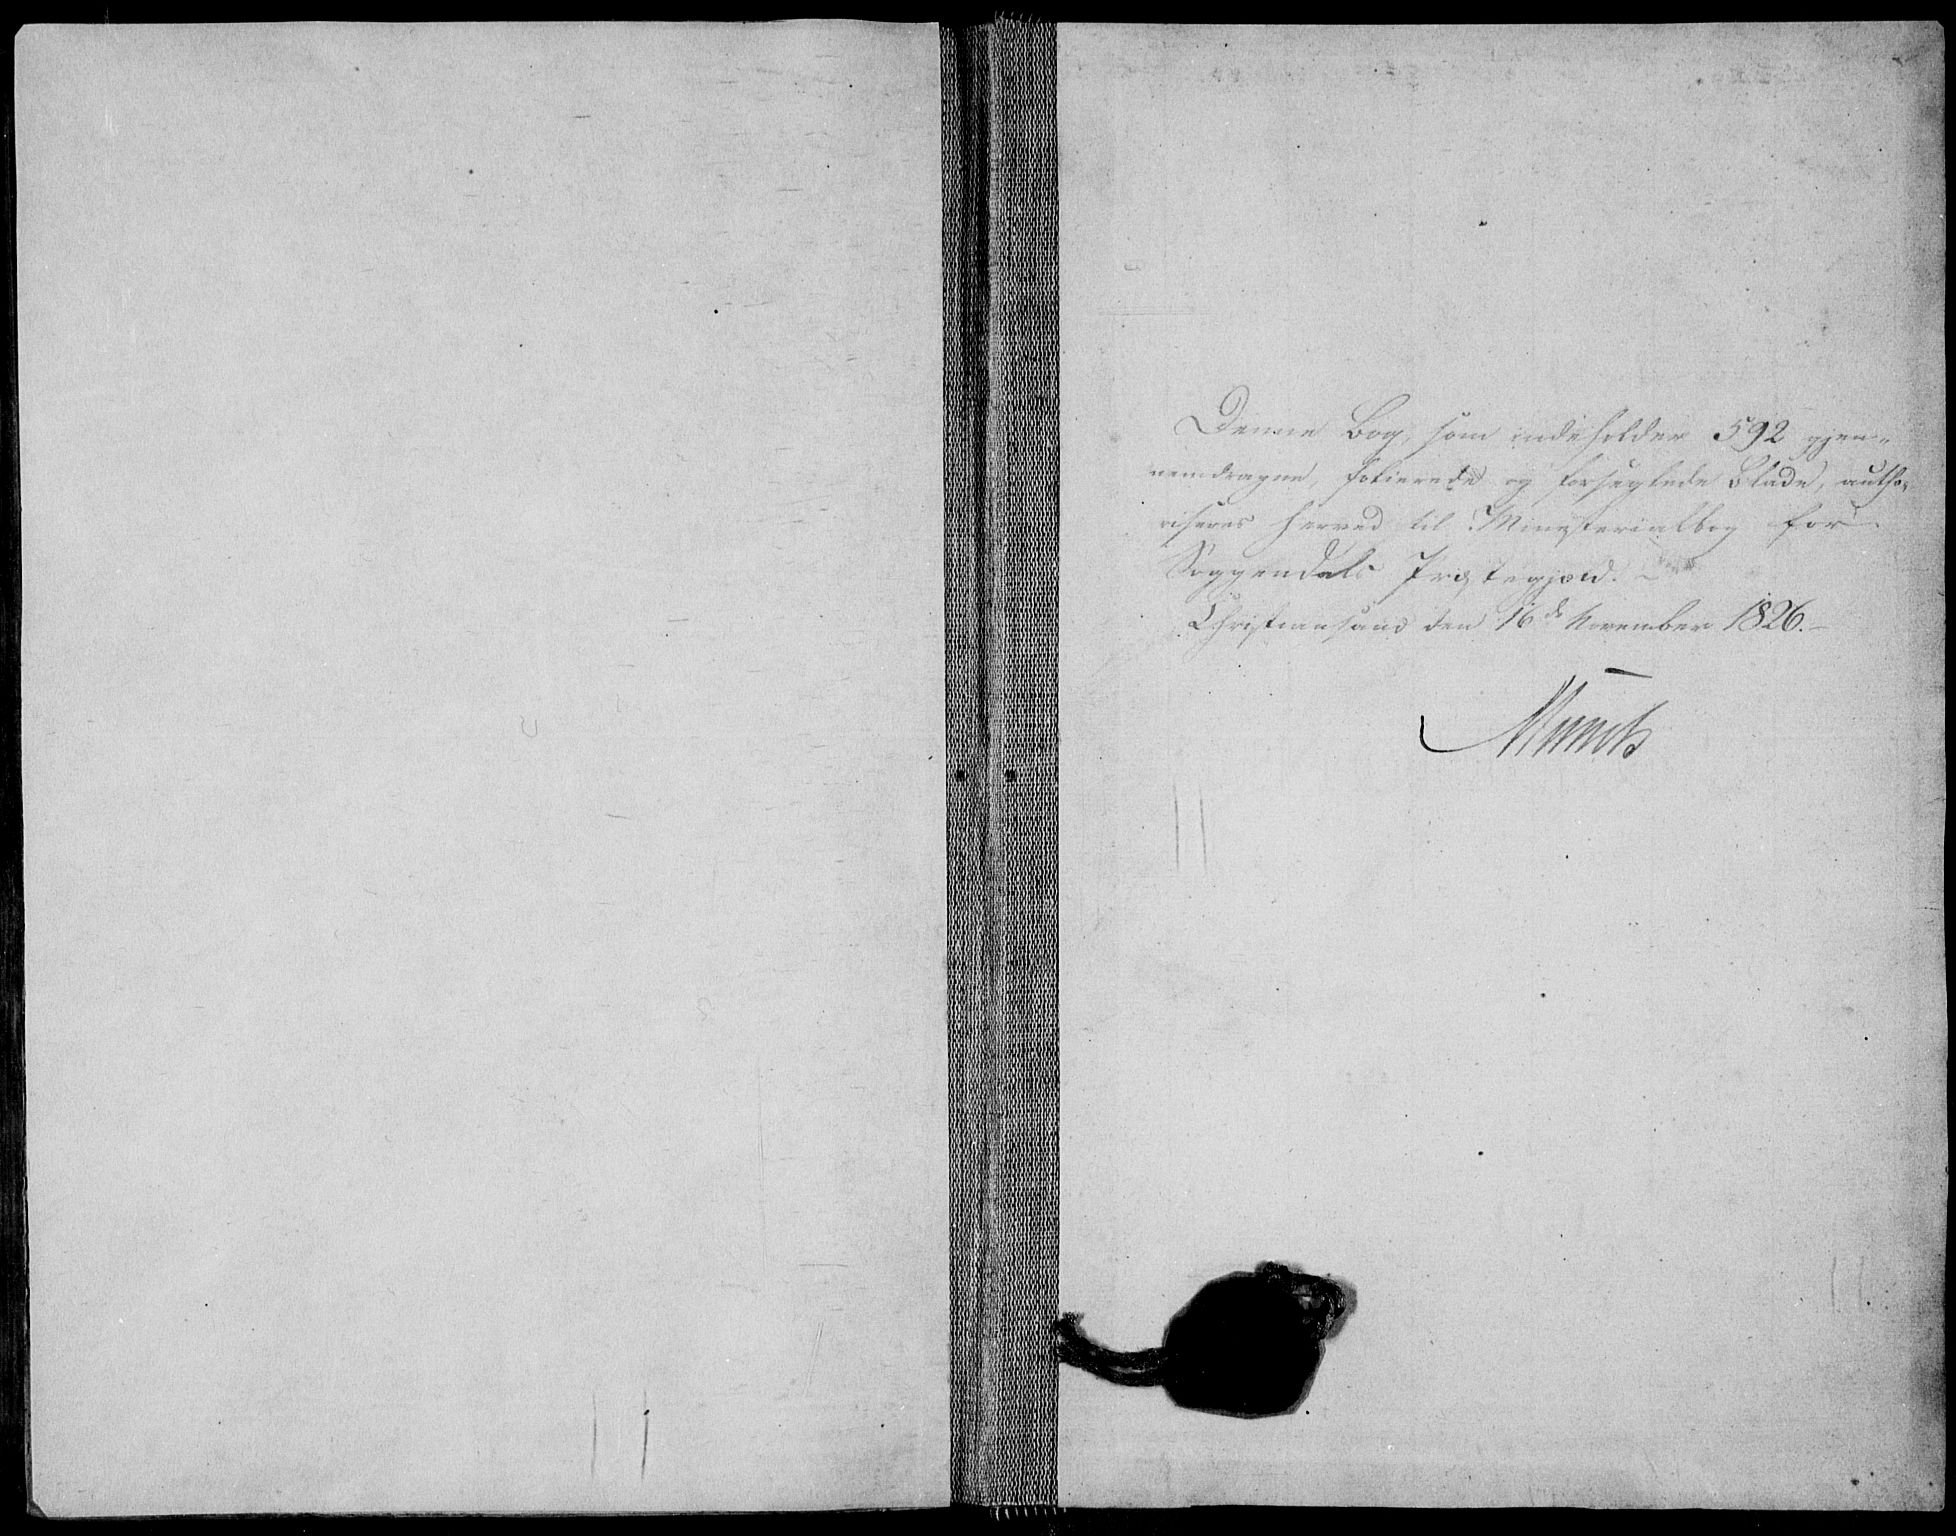 Denne Bog, som indeholder 592 gjen-
nemdragne, folierede og forseglede Blade, autho-
riseres herved til Ministerialbog for
Soggendals Præstegjæld.
Christiansand den 16de November 1826.
Munch